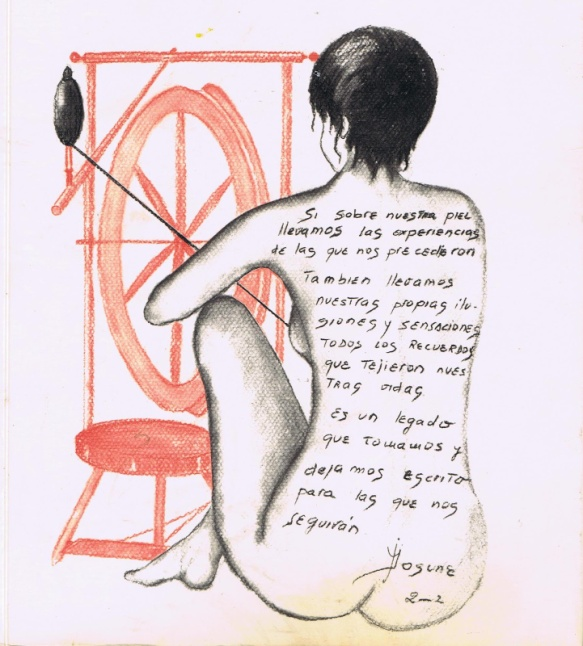 Si sobre nuestra piel
llevamos las experiencias
de las que nos precedieron
Tambien llevamos
nuestras propias ilu-
siones y sensaciones
TODOS LOS RECUERDOS
que Tejieron nues
Tras vidas
Es un legado
que tomamos y
dejamos escrito
para las que nos
seguirán
Josune
2-2